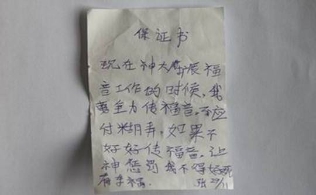 保证书
现在神大库展福
音工作的时候，我
要全力传福音，不应
付糊弄，如果不
好好传福音，让
神惩罚我不得好死
张